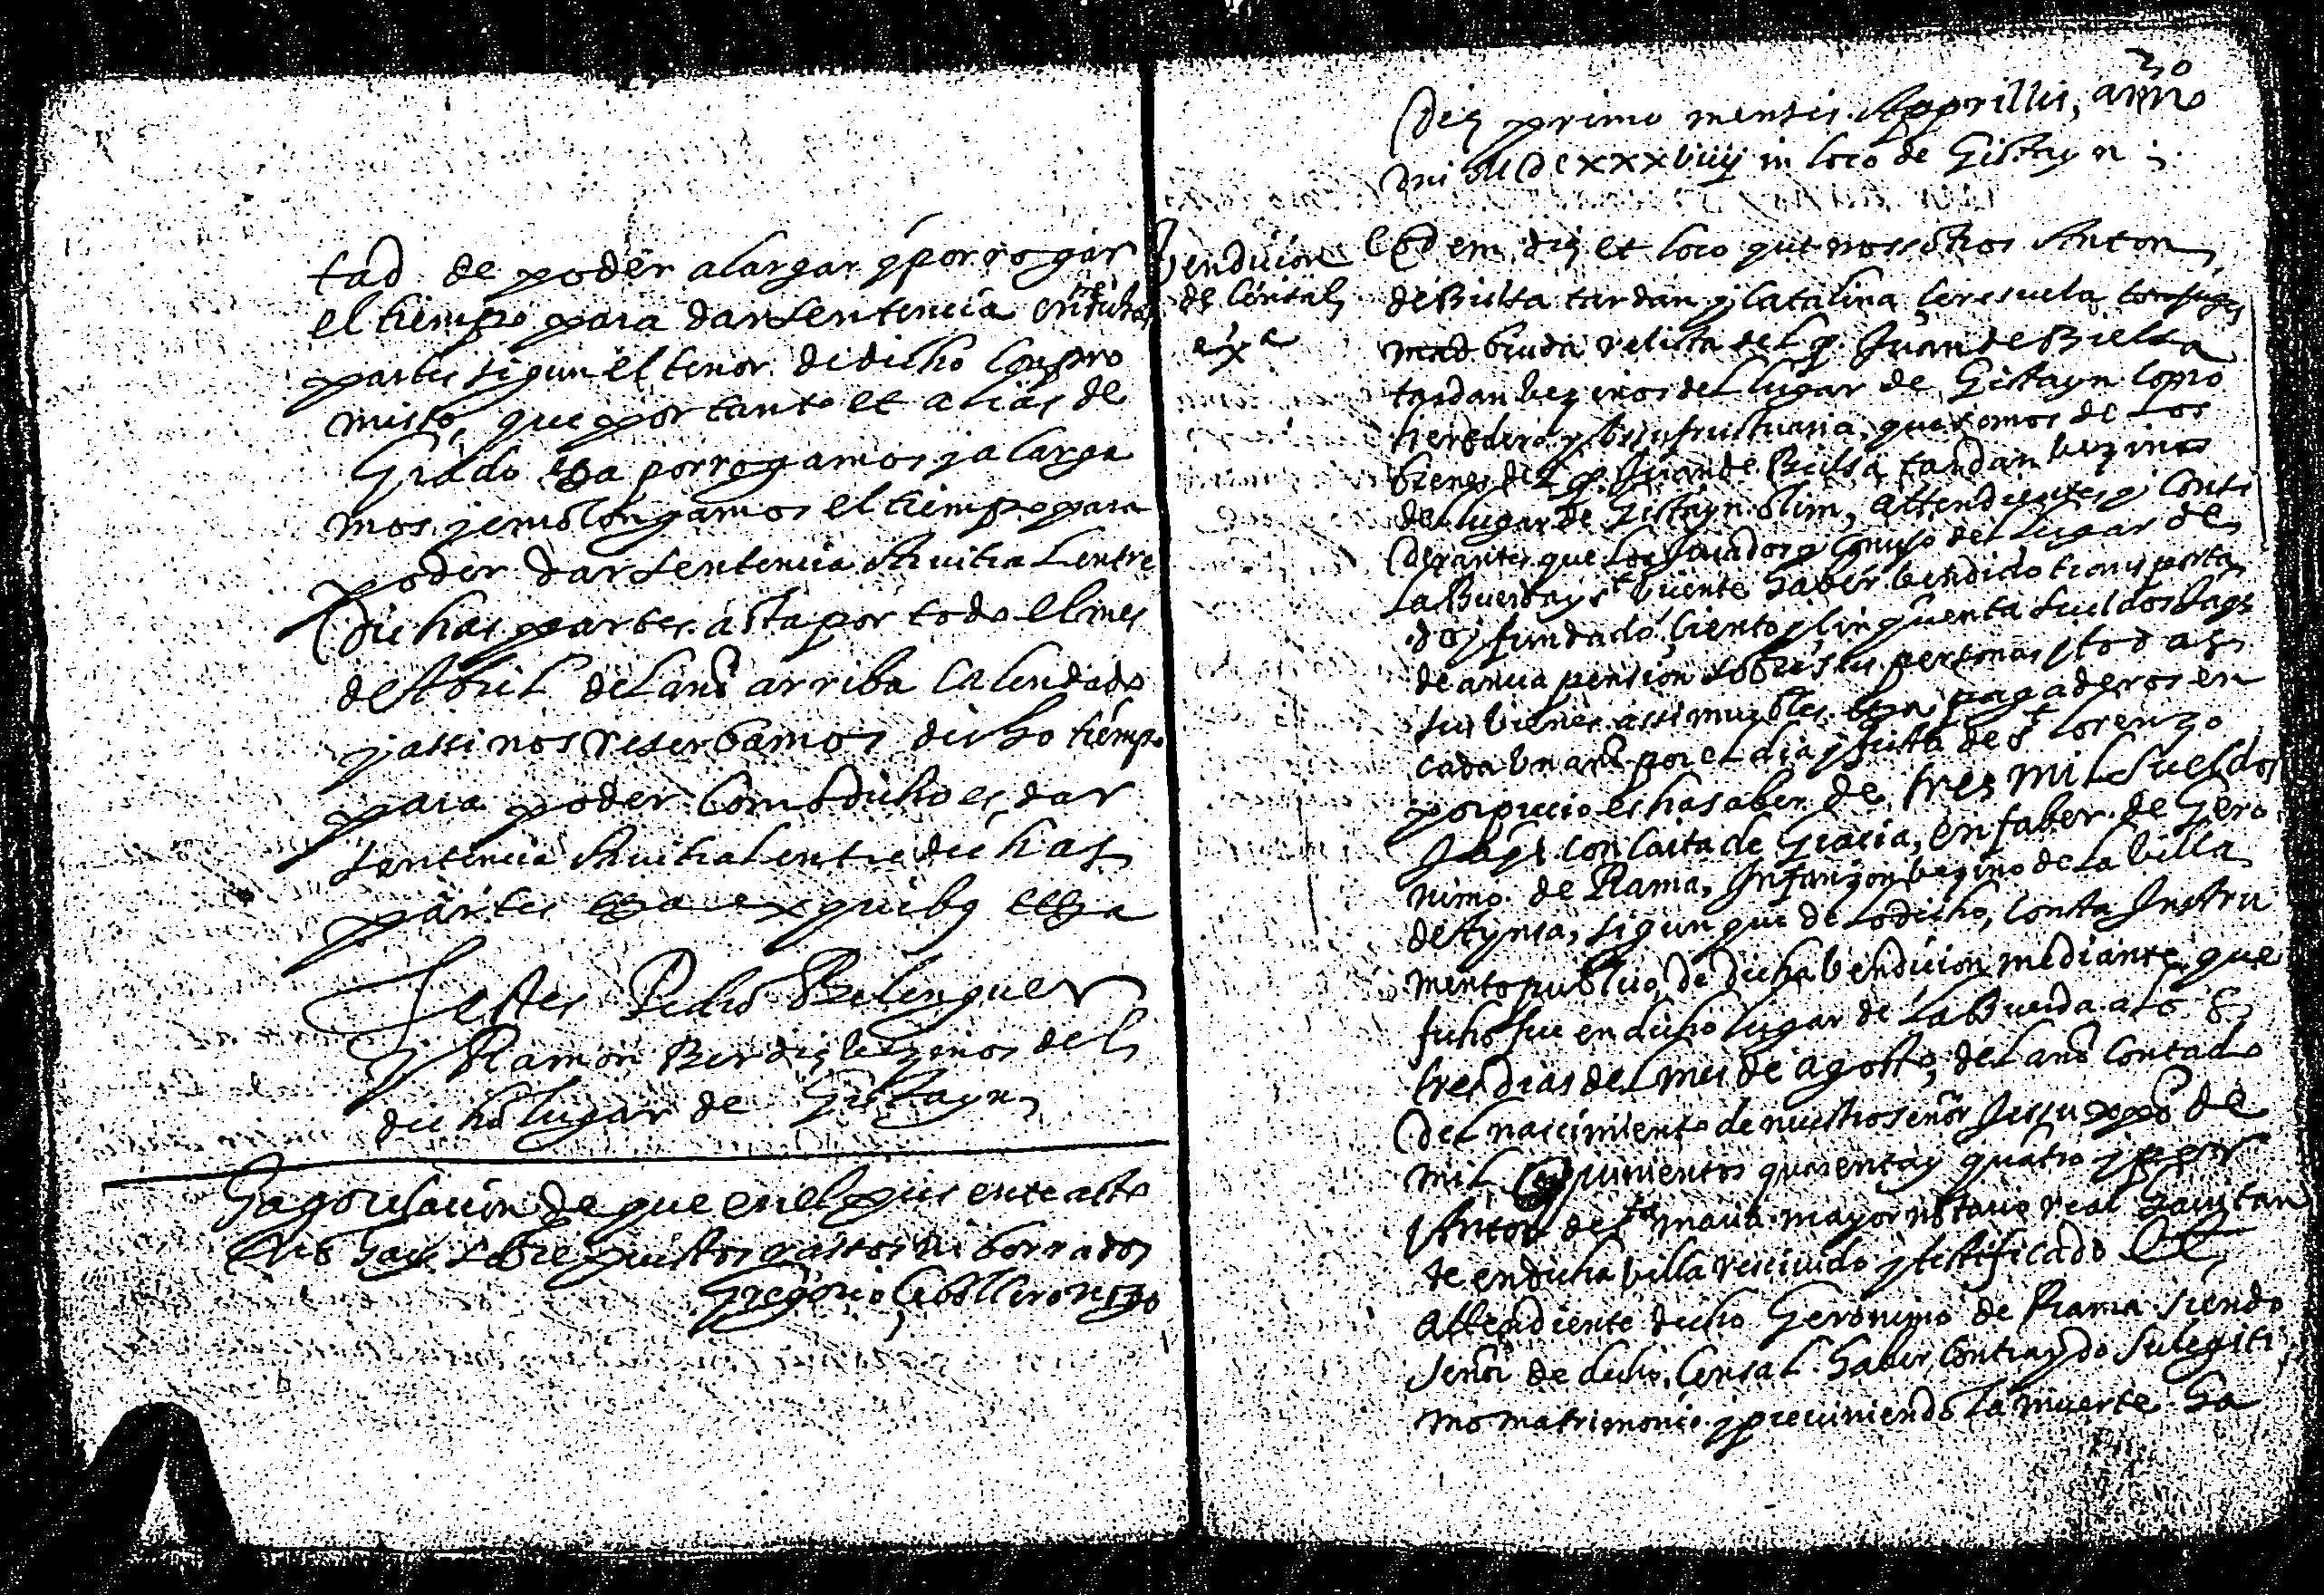 tad de poder alargar y porrogar
el tiempo para dar sentencia entre dichas
partes sigun el tenor de dicho Conpro
misso, que por tanto et alias de
Grado &a porrogamos y alarga
mos y emolongamos el tiempo para
poder dar sentencia Arvitral entre
Dichas partes asta por todo el mes
de Abril del año arriba Calendado
y assi nos reserbamos dicho tiempo
para poder Como dicho es dar
sentencia Arvitral entre dichas
partes &a ex quibus &a
Testes Pedro Belenguer
y Ramon Berdie vezinos del
dicho lugar de Gistayn
Hago relacion de que en el pres ente acto
No hay sobre puestos rassos ni borrados
Gregorio Cebollero not
30
Die primo mensis Apprillis, anno
Dni MDCXXXVIIIJ in loco de Gistayn
Vendicion
de Censal
Eodem die et loco que nossotros Anton
de Bielsa tardan y Catalina Ceresuela conjuges
mad biuda relicta del q. Juan de Bielsa
tardan vezinos del lugar de Gistayn Como
heredero y ussufructuaria que somos de los
bienes del q. Juan de Bielsa tardan vezino
del lugar de Gistayn olim, attendientes y Consi
derantes que los Jurados y Consejo del lugar de
La Buerda y st Vicente haber bendido transporta
do y fundado, Ciento y Cinquenta sueldos Jaqs
de annua pension sobre sus personas y todas
sus bienes assi muebles Como pagaderos en
cada un año por el dia y fiesta de st Lorenzo
por precio es ha saber de tres mil sueldos
Jaqs con Carta de Gracia, en faber de Gero
nimo de Rama, Infanzon vezino de la billa
de Aynsa, sigun que de lo dicho, Consta Instru
mento publico de dicha bendicion mediante que
fecho fue en dicho lugar de La Buerda a los
tres dias del mes de agosto, del año Contado
Del nacimiento de nuestro señor Jessu xpo de
mil Quinientos quarenta y quatro y por
Anton de sta maria mayor notario real havitan
te en dicha billa recivido y testificado Et
attendiente dicho Geronimo de Rama siendo
señor de dicho Censal haber Contraydo su legiti
mo matrimonio y preciniendo la muerte ha